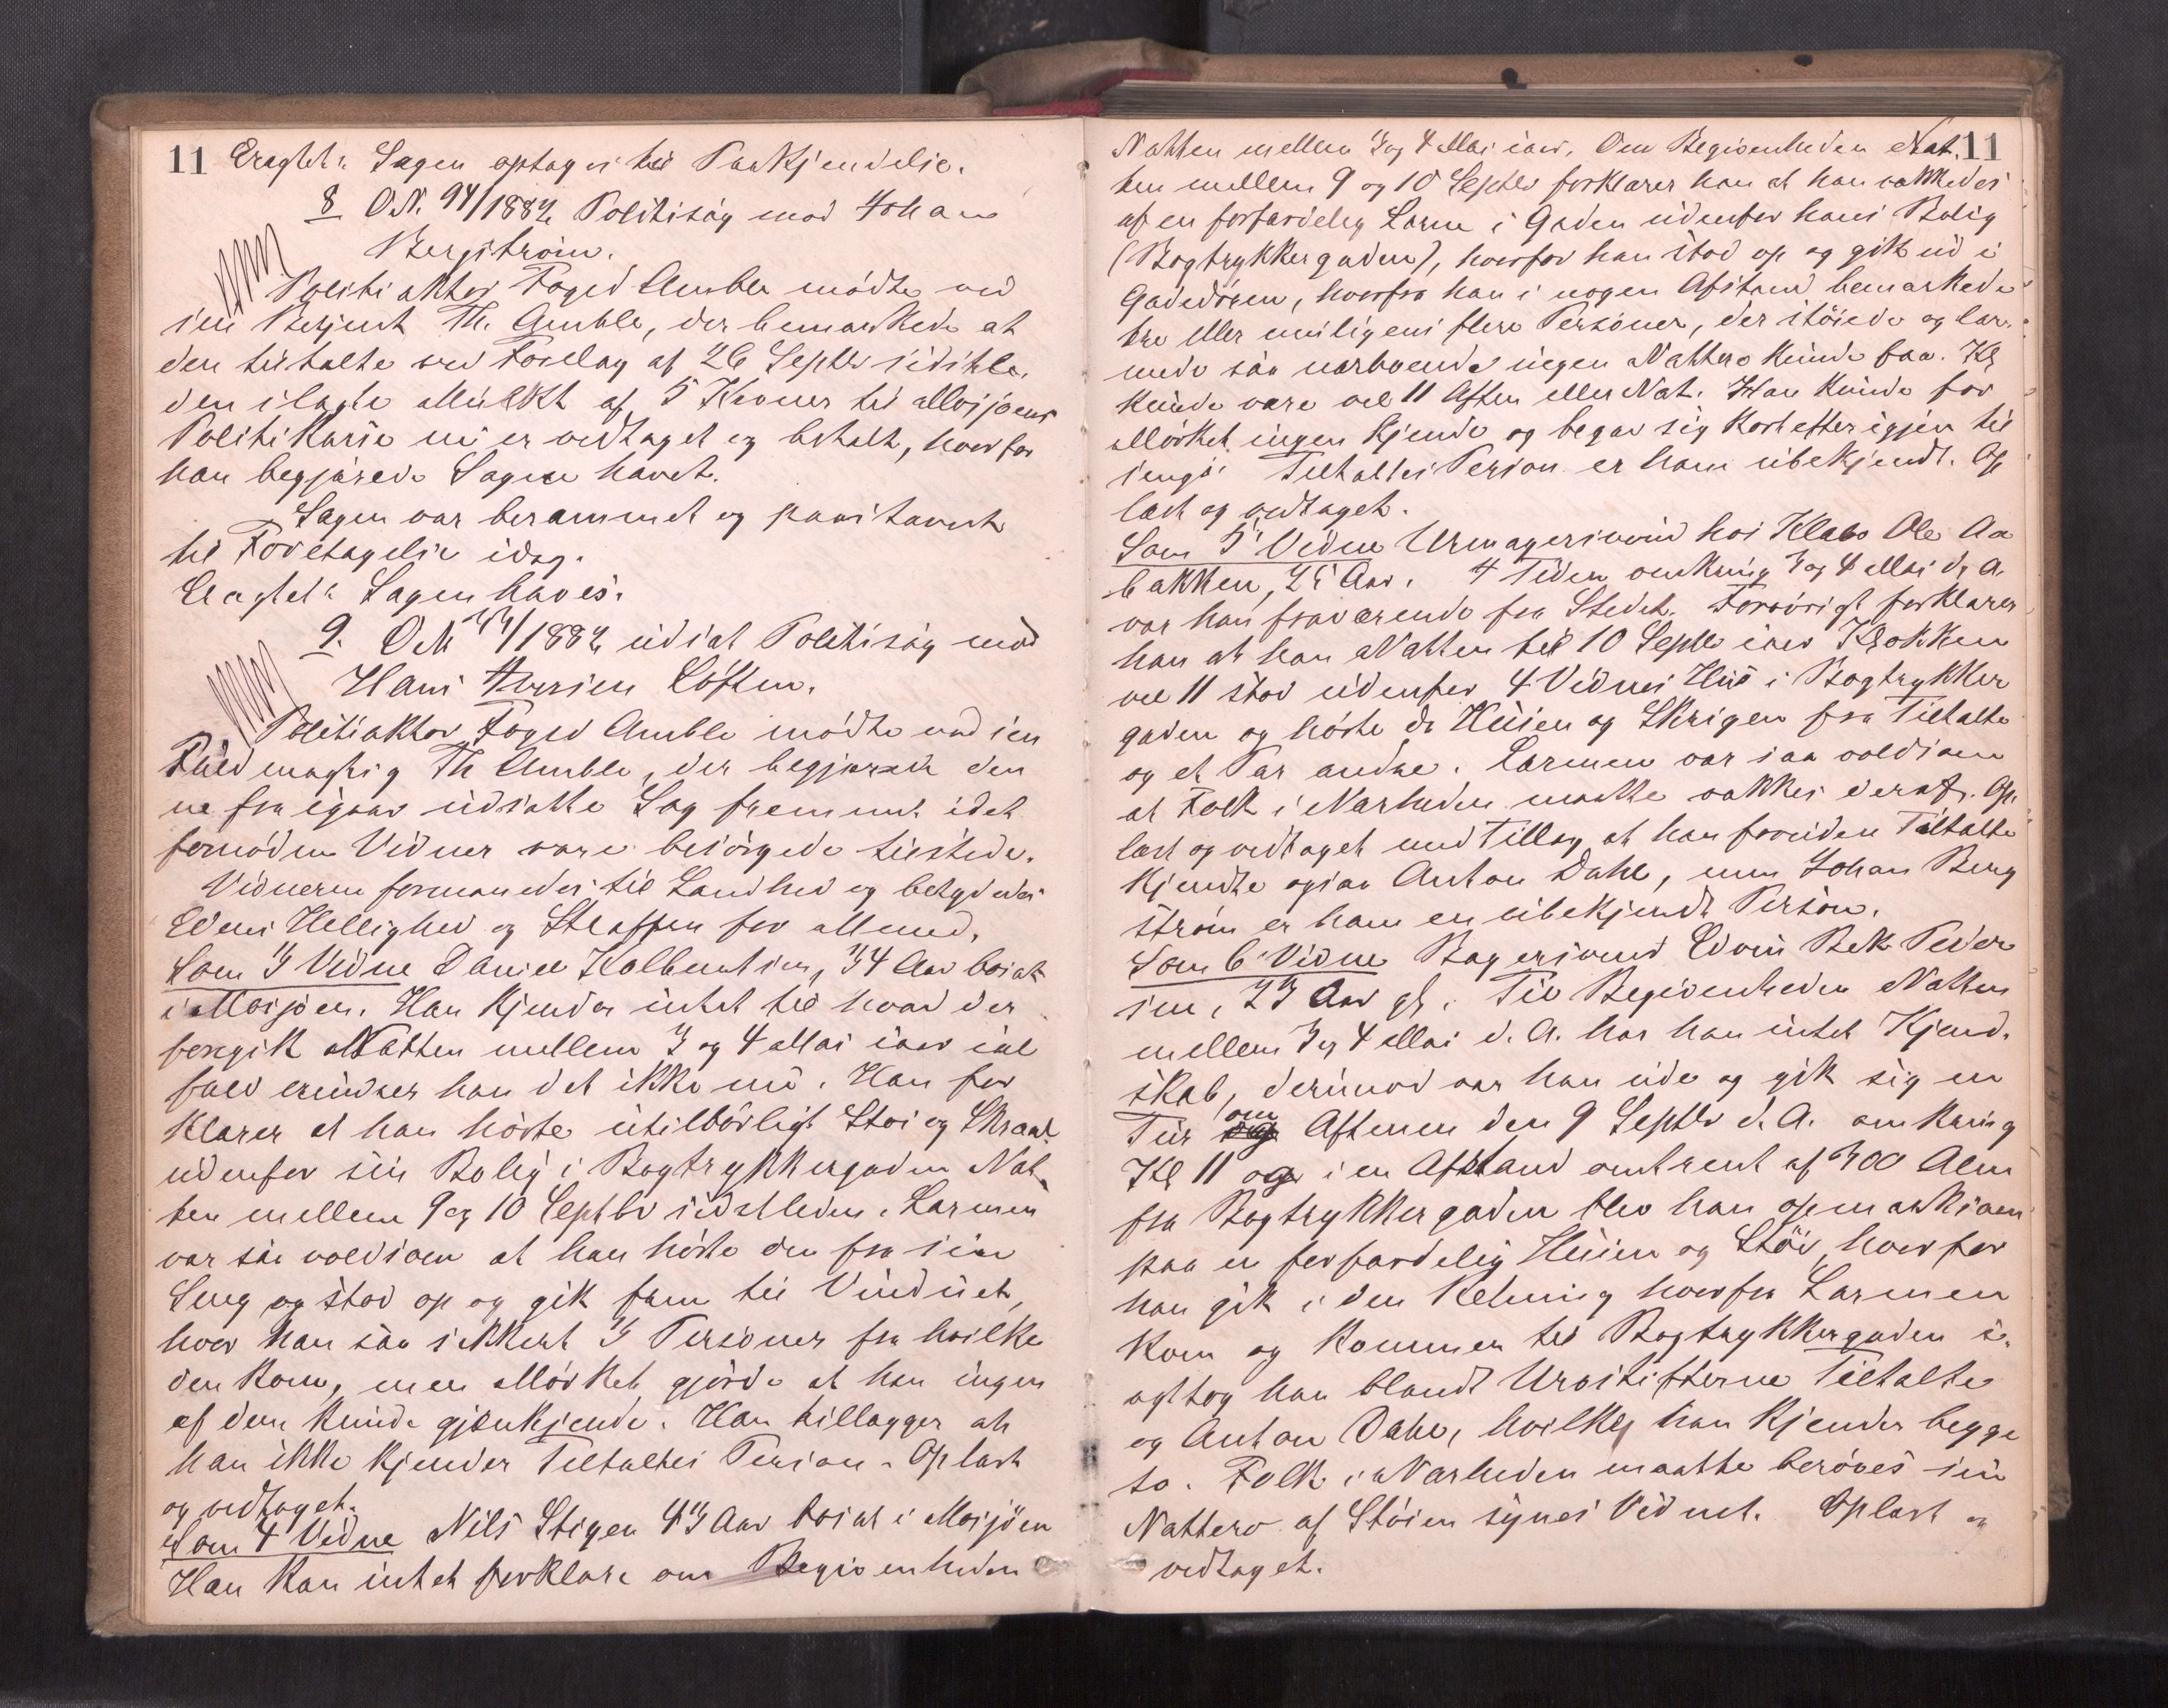 11 Eragtet: Sagen optages til Paakjendelse.
8 O.N. 94/1882 Politisag mod Johan
Bergström.
Politiaktor Foged Amble mödte ved
sin Betjent Th. Amble, der bemærkede at
den tiltalte ved Forelæg af 26 Septbr sidstle-
den ilagte Mulkt af 5 Kroner til Mosjøens
Politikasse nu er vedtaget og betalt, hvorfor
han begjærede Sagen hævet.
Sagen var berammet og paastævnt
til Foretagelse idag.
Eragtet: Sagen hæves.
9. O.N. /1882 udsat Politisag mod
Hans Løften.
Politiaktor Foged Amble mødte ved sin
Fuldmægtig Th Amble, der begjærede den
ne fra igaar udsatte Sag fremmet idet
fornødne Vidner vare besörgede tilstede.
Vidnerne formanedes til Sandhed og betydedes
Edens Hellighed og Straffen for Mened.
Som 3 Vidne Daniel Kolbentsen, 34 Aar bosat
i Mosjøen. Han kjender intet til hvad der
foregik Natten mellem 3 og 4 Mai iaar ial
fald erindrer han det ikke nu. Han for
klarer at han hörte utilbörligt Stöi og Skraal
udenfor sin Bolig i Bogtrykkergaden Nat-
ten mellem 9 og 10 Septbr sidstleden. Larmen
var saa voldsom at han hörte den fra sin
Seng og stod op og gik frem til Vinduet,
hvor han saa sikkert 3 Personer fra hvilke
den kom, men Mörket gjorde at han ingen
af dem kunde gjenkjende. Han tillægger at
han ikke kjender Tiltaltes Person. Oplæst
og vedtaget.
Som 4 Vidne Nils Stigen 43 Aar bosat i Mosjöen
Han kan intet forklare om Begivenheden
Natten mellem 3 og 4 Mai iaar. Om Begivenheden Nat- 11
ten mellem 9 og 10 Septbr forklarer han at han vækkedes
af en forfærdelig Larm i Gaden udenfor hans Bolig
(Bogtrykkergaden), hvorfor han stod op og gik ud i
Gadedören, hvorfra han i nogen Afstand bemærkede
tre eller muligens flere Personer, der stöiede og lar-
mede saa nærboende ingen Nattero kunde faa. Kl
kunde være vel 11 Aften eller Nat. Han kunde for
Mörket ingen kjende og begav sig kort efter igjen til
sengs. Tiltaltes Person er ham ubekjendt. Op
læst og vedtaget.
Som 5 Vidne Urmagersvend hos Klabo Ole Aa
bakken, 25 Aar. Tiden omkring 3 og 4 Mai d. A.
var han fraværende fra Stedet. Forøvrigt forklarer
han at han Natten til 10 Septbr iaar Klokken
vel 11 stod udenfor 4 Vidnes Hus i Bogtrykker
gaden og hörte da Huien og Skrigen fra Tiltalte
og et Par andre. Larmen var saa voldsom
at Folk i Nærheden maatte vækkes deraf. Op-
læst og vedtaget med Tillæg at han foruden Tiltalte
kjendte ogsaa Anton Dahl, men Johan Berg
ström er ham en ubekjendt Person.
Som 6 Vidne Bagersvend Edvin Bek Peder
sen, 23 Aar gl. Til Begivenheden Natten
mellem 3 og 4 Mai d. A. har han intet Kjend-
skab, derimod var han ude og gik sig en
Tur om Aftenen den 9 Septbr d. A. omkring
Kl 11 og i en Afstand omtrent af 300 Alen
fra Bogtrykkergaden blev han opmærksom
paa en forfærdelig Huien og Stöi, hvorfor
han gik i den Retning hvorfra Larmen
kom og kommen til Bogtrykkergaden i-
agttog han blandt Urostifterne Tiltalte
og Anton Dahl, hvilke han kjender begge
to. Folk i Nærheden maatte beröves sin
Nattero af Stöien synes Vidnet. Oplæst og
vedtaget.